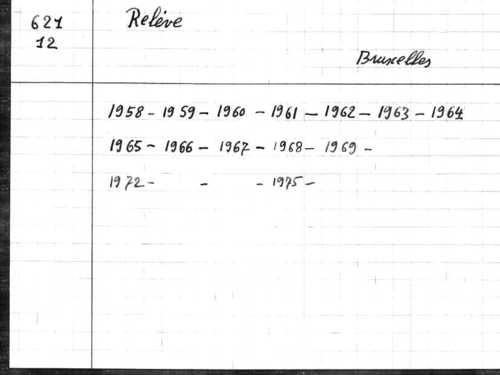 621
12
Relève
Bruxelles
1958 - 1959 - 1960 - 1961 - 1962 - 1963 - 1964
1965 - 1966 - 1967 - 1968 - 1969 -
1972 - - - 1975 -